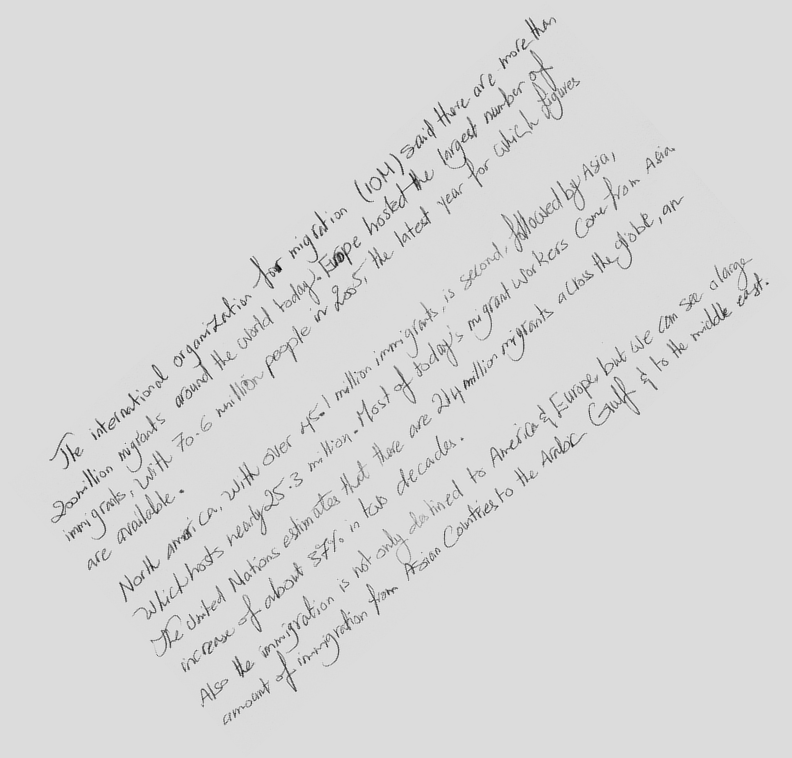 The international organization for migration (IOM) said there are more than
200 million migrants around the world today. Europe hosted the largest number of
immigrants, with 70.6 million people in 2005, the latest year for which figures
are available.
North america, with over 45.1 million immigrants, is second, followed by Asia,
which hosts nearly 25.3 million. Most of today's migrant workers come from Asia.
The United Nations estimates that there are 214 million migrants across the globe, an
increase of about 37% in two decades.
Also the immigration is not only destined to America & Europe, but we can see a large
amount of immigration from Asian Countries to the Arabic Gulf & to the middle east.